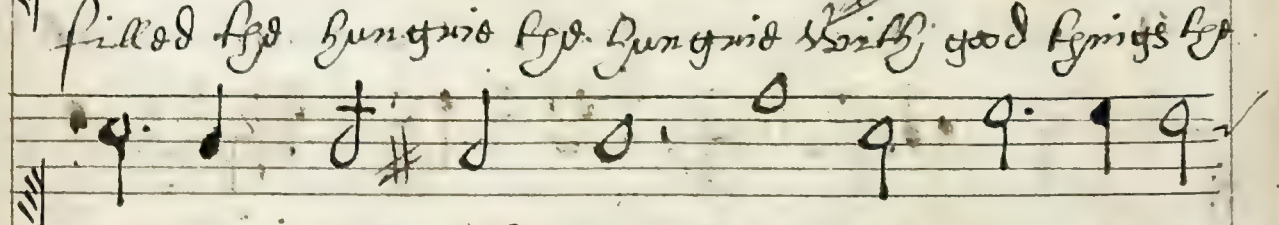 filled the hungrie the hungrie with good things the